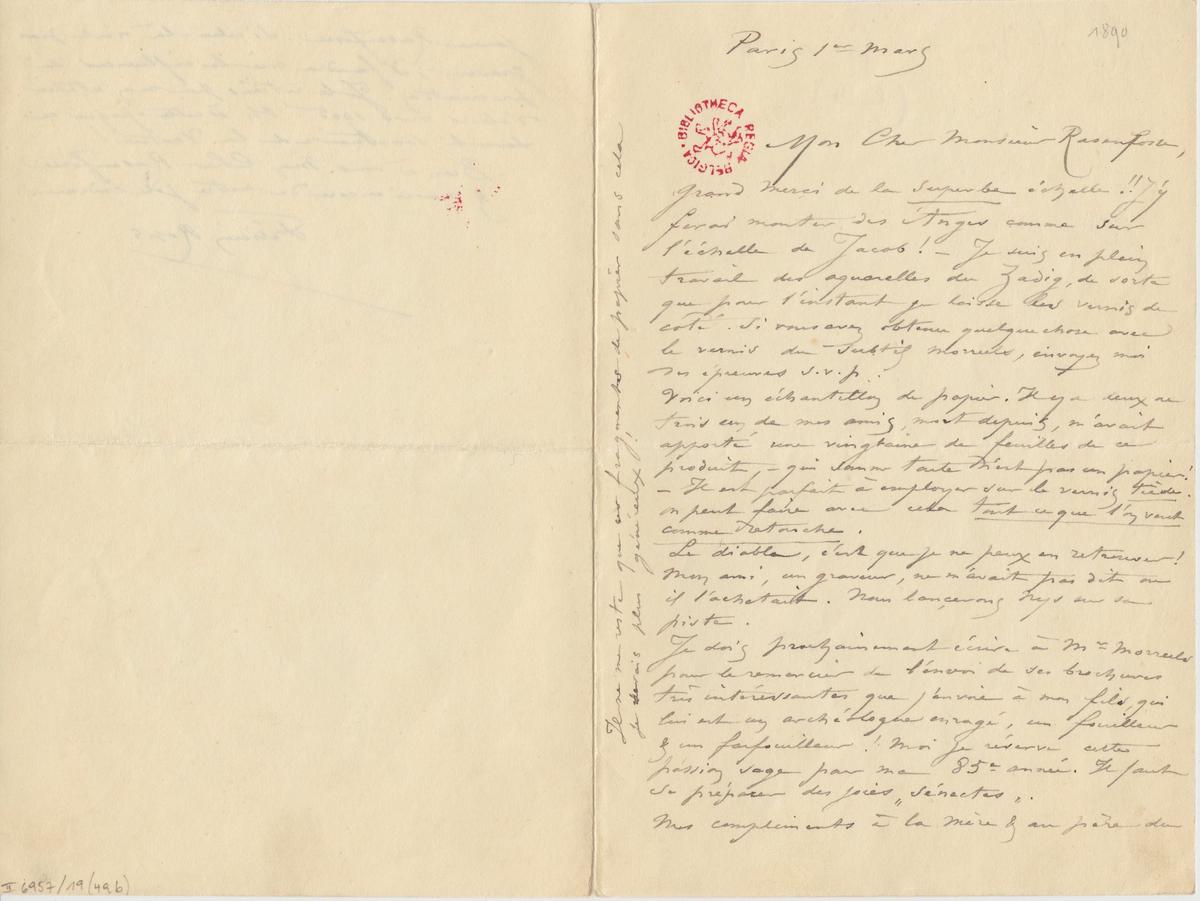 1890
Paris 1er Mars
BIBLIOTHECA REGIA BELGICA
Mon Cher Monsieur Rassenfosse,
Grand Merci de la superbe échelle !! J'y
ferai monter des Anges comme sur
l'échelle de Jacob ! – Je suis en plein
travail des aquarelles du Zadig, de sorte
que pour l'instant je laisse les vernis de
coté. Si vous avez obtenu quelque chose avec
le vernis du subtil Morreels, envoyez moi
des épreuves s.v.p.
Voici un échantillon de papier. Il y a deux ou
trois ans un de mes amis, mort depuis, m'avait
apporté une vingtaine de feuilles de ce
produit, – qui somme toute n'est pas un papier !
– Il est parfait à employer sur le vernis tiède.
on peut faire avec cela tout ce que l'on veut
comme retouche.
Le diable, c'est que je ne peux en retrouver !
Mon ami, un graveur, ne m'avait pas dit où
il l'achetait. Nous lancerons Nys sur sa
piste.
Je dois prochainement écrire à Mr Morreels
pour le remercier de l'envoi de ses brochures
très intéressantes que j'envoie à mon fils, qui
lui est un archéologue enragé, un fouilleur
& un farfouilleur ! Moi je réserve cette
passion sage pour ma 85e année. Il faut
se préparer des joies „sénectes„.
Mes compliments à la Mère & au père du
Il ne me reste que des fragments de papier sans cela
je serais plus généreux !!
II 6957/19 (49b)